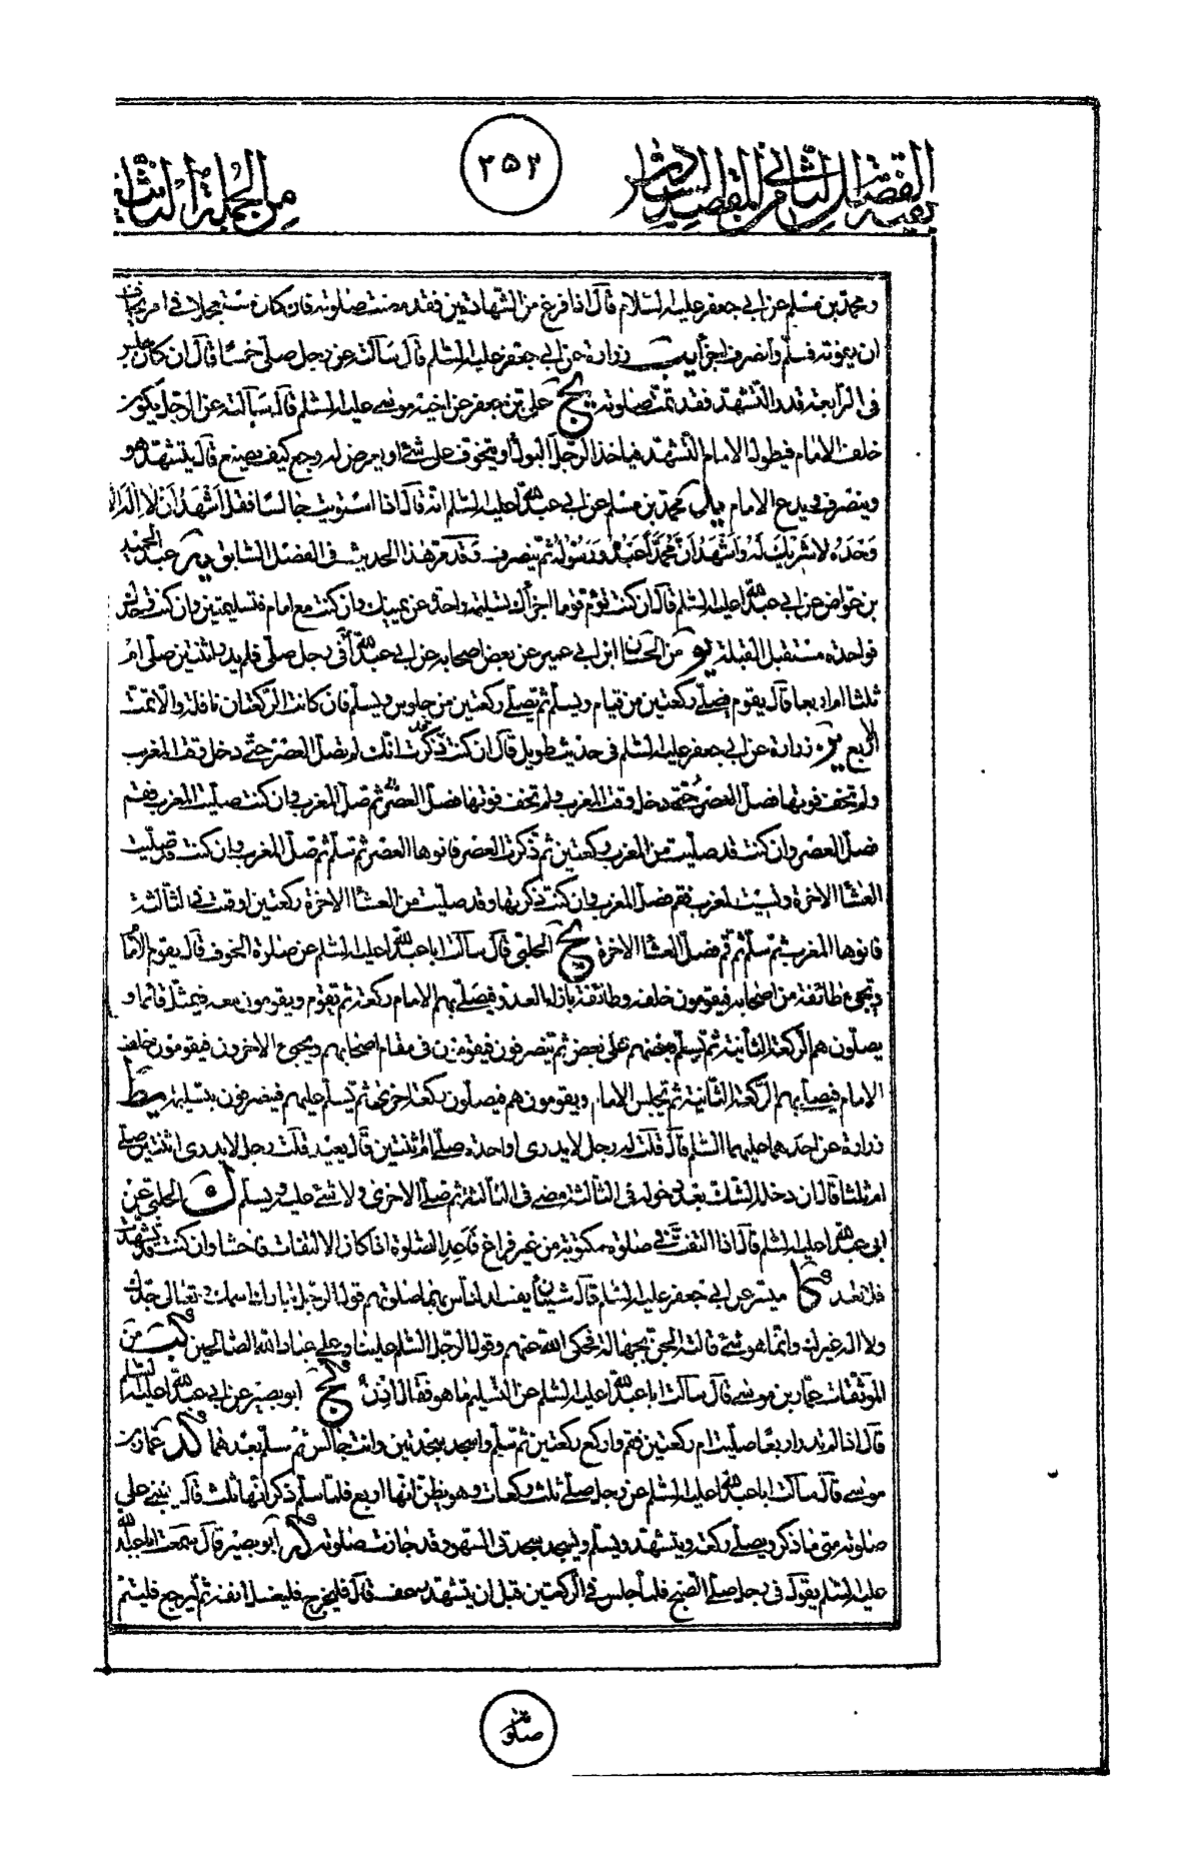 بقية الفصل الثانى من المقصد السادس
٢٥٢
من الجملة الثانية
ومحمد بن مسلم عن ابى جعفر عليه السلام قال اذا فرغ من الشهادتين فقد مضت صلوته فان كان مستعجلا فى امر يخاف
ان يفوته فسلم وانصرف اجزأه يب زرارة عن ابى جعفر عليه السلم قال سألته عن رجل صلى خمسا فقال ان كان جلس
فى الرابعة قدر التشهد فقد تمت صلوته يج على بن جعفر عن اخيه موسى عليه السلم قال سألته عن الرجل يكون
خلف الامام فيطول الامام التشهد فياخذ الرجل البول او يتخوف على شئ او يعرض له وجع كيف يصنع قال يتشهد هو
وينصرف ويدع الامام يد محمد بن مسلم عن ابى عبد الله عليه السلم انه قال اذا استويت جالسا فقل اشهد ان لا اله الا الله
وحده لا شريك له واشهد ان محمدا عبده ورسوله ثم تنصرف وقد مر هذا الحديث فى الفصل السابق يه عبد الحميد
بن عواض عن ابى عبد الله عليه السلم قال ان كنت تؤم قوما اجزأك تسليمة واحدة عن يمينك وان كنت مع امام فتسليمتين وان كنت وحدك
فواحدة مستقبل القبلة يو من الحسان ابن ابى عمير عن بعض اصحابه عن ابى عبد الله فى رجل صلى فلم يدر اثنتين صلى ام
ثلثا ام اربعا قال يقوم فيصلى ركعتين من قيام ويسلم ثم يصلى ركعتين من جلوس ويسلم فان كانت الركعتان نافلة والا تمت
الاربع يز زرارة عن ابى جعفر عليه السلم فى حديث طويل قال ان كنت ذكرت انك لم تصل العصر حتى دخل وقت المغرب
ولم تخف فوتها فصل العصر ثم صل المغرب وان كنت صليت المغرب فقم
فصل العصر وان كنت قد صليت من المغرب ركعتين ثم ذكرت العصر فانوها العصر ثم سلم ثم صل المغرب وان كنت قد صليت
العشاء الاخرة ونسيت المغرب فقم فصل المغرب وان كنت ذكرتها وقد صليت من العشاء الاخرة ركعتين او قمت فى الثالثة
فانوها المغرب ثم سلم ثم قم فصل العشاء الاخرة يح الحلبى قال سألت ابا عبد الله عليه السلم عن صلوة الخوف قال يقوم الامام
ويجئ طائفة من اصحابه فيقومون خلفه وطائفة بازاء العدو فيصلى بهم الامام ركعة ثم يقوم ويقومون معه فيمثل قائما و
يصلون هم الركعة الثانية ثم يسلم بعضهم على بعض ثم ينصرفون فيقومون فى مقام اصحابهم ويجئ الاخرون فيقومون خلف
الامام فيصلى بهم الركعة الثانية ثم يجلس الامام ويقومون هم فيصلون ركعة اخرى ثم يسلم عليهم فينصرفون بتسليمه يط
زرارة عن احدهما عليهما السلم قال قلت له رجل لا يدرى اواحدة صلى ام اثنتين قال يعيد قلت رجل لا يدرى اثنتين صلى
ام ثلثا قال ان دخله الشك بعد دخوله فى الثالثة مضى فى الثالثة ثم صلى الاخرى ولا شئ عليه ويسلم ك الحلبى عن
ابى عبد الله عليه السلم قال اذا التفت فى صلوة مكتوبة من غير فراغ فاعد الصلوة اذا كان الالتفات فاحشا وان كنت قد تشهدت
فلا تعد كا ميسر عن ابى جعفر عليه السلم قال شيئان يفسد الناس بهما صلوتهم قول الرجل تبارك اسمك وتعالى جدك
ولا اله غيرك وانما هو شئ قالته الجن بجهالة فحكى الله عنهم وقول الرجل السلم علينا وعلى عباد الله الصالحين كب من
الموثقات عمار بن موسى قال سألت ابا عبد الله عليه السلم عن التسليم ما هو فقال اذن كج ابو بصير عن ابى عبد الله عليه السلم
قال اذا لم تدر اربعا صليت ام ركعتين فقم واركع ركعتين ثم سلم واسجد سجدتين وانت جالس ثم سلم بعدهما كد عمار بن
موسى قال سألت ابا عبد الله عليه السلم عن رجل صلى ثلث ركعات وهو يظن انها اربع فلما سلم ذكر انها ثلث قال يبنى على
صلوته متى ما ذكر ويصلى ركعة ويتشهد ويسلم ويسجد سجدتى السهو وقد جازت صلوته كه ابو بصير قال سمعت ابا عبد الله
عليه السلم يقول فى رجل صلى الصبح فلما جلس فى الركعتين قبل ان يتشهد رعف قال فليخرج فليغسل انفه ثم ليرجع فليتم
صلوته